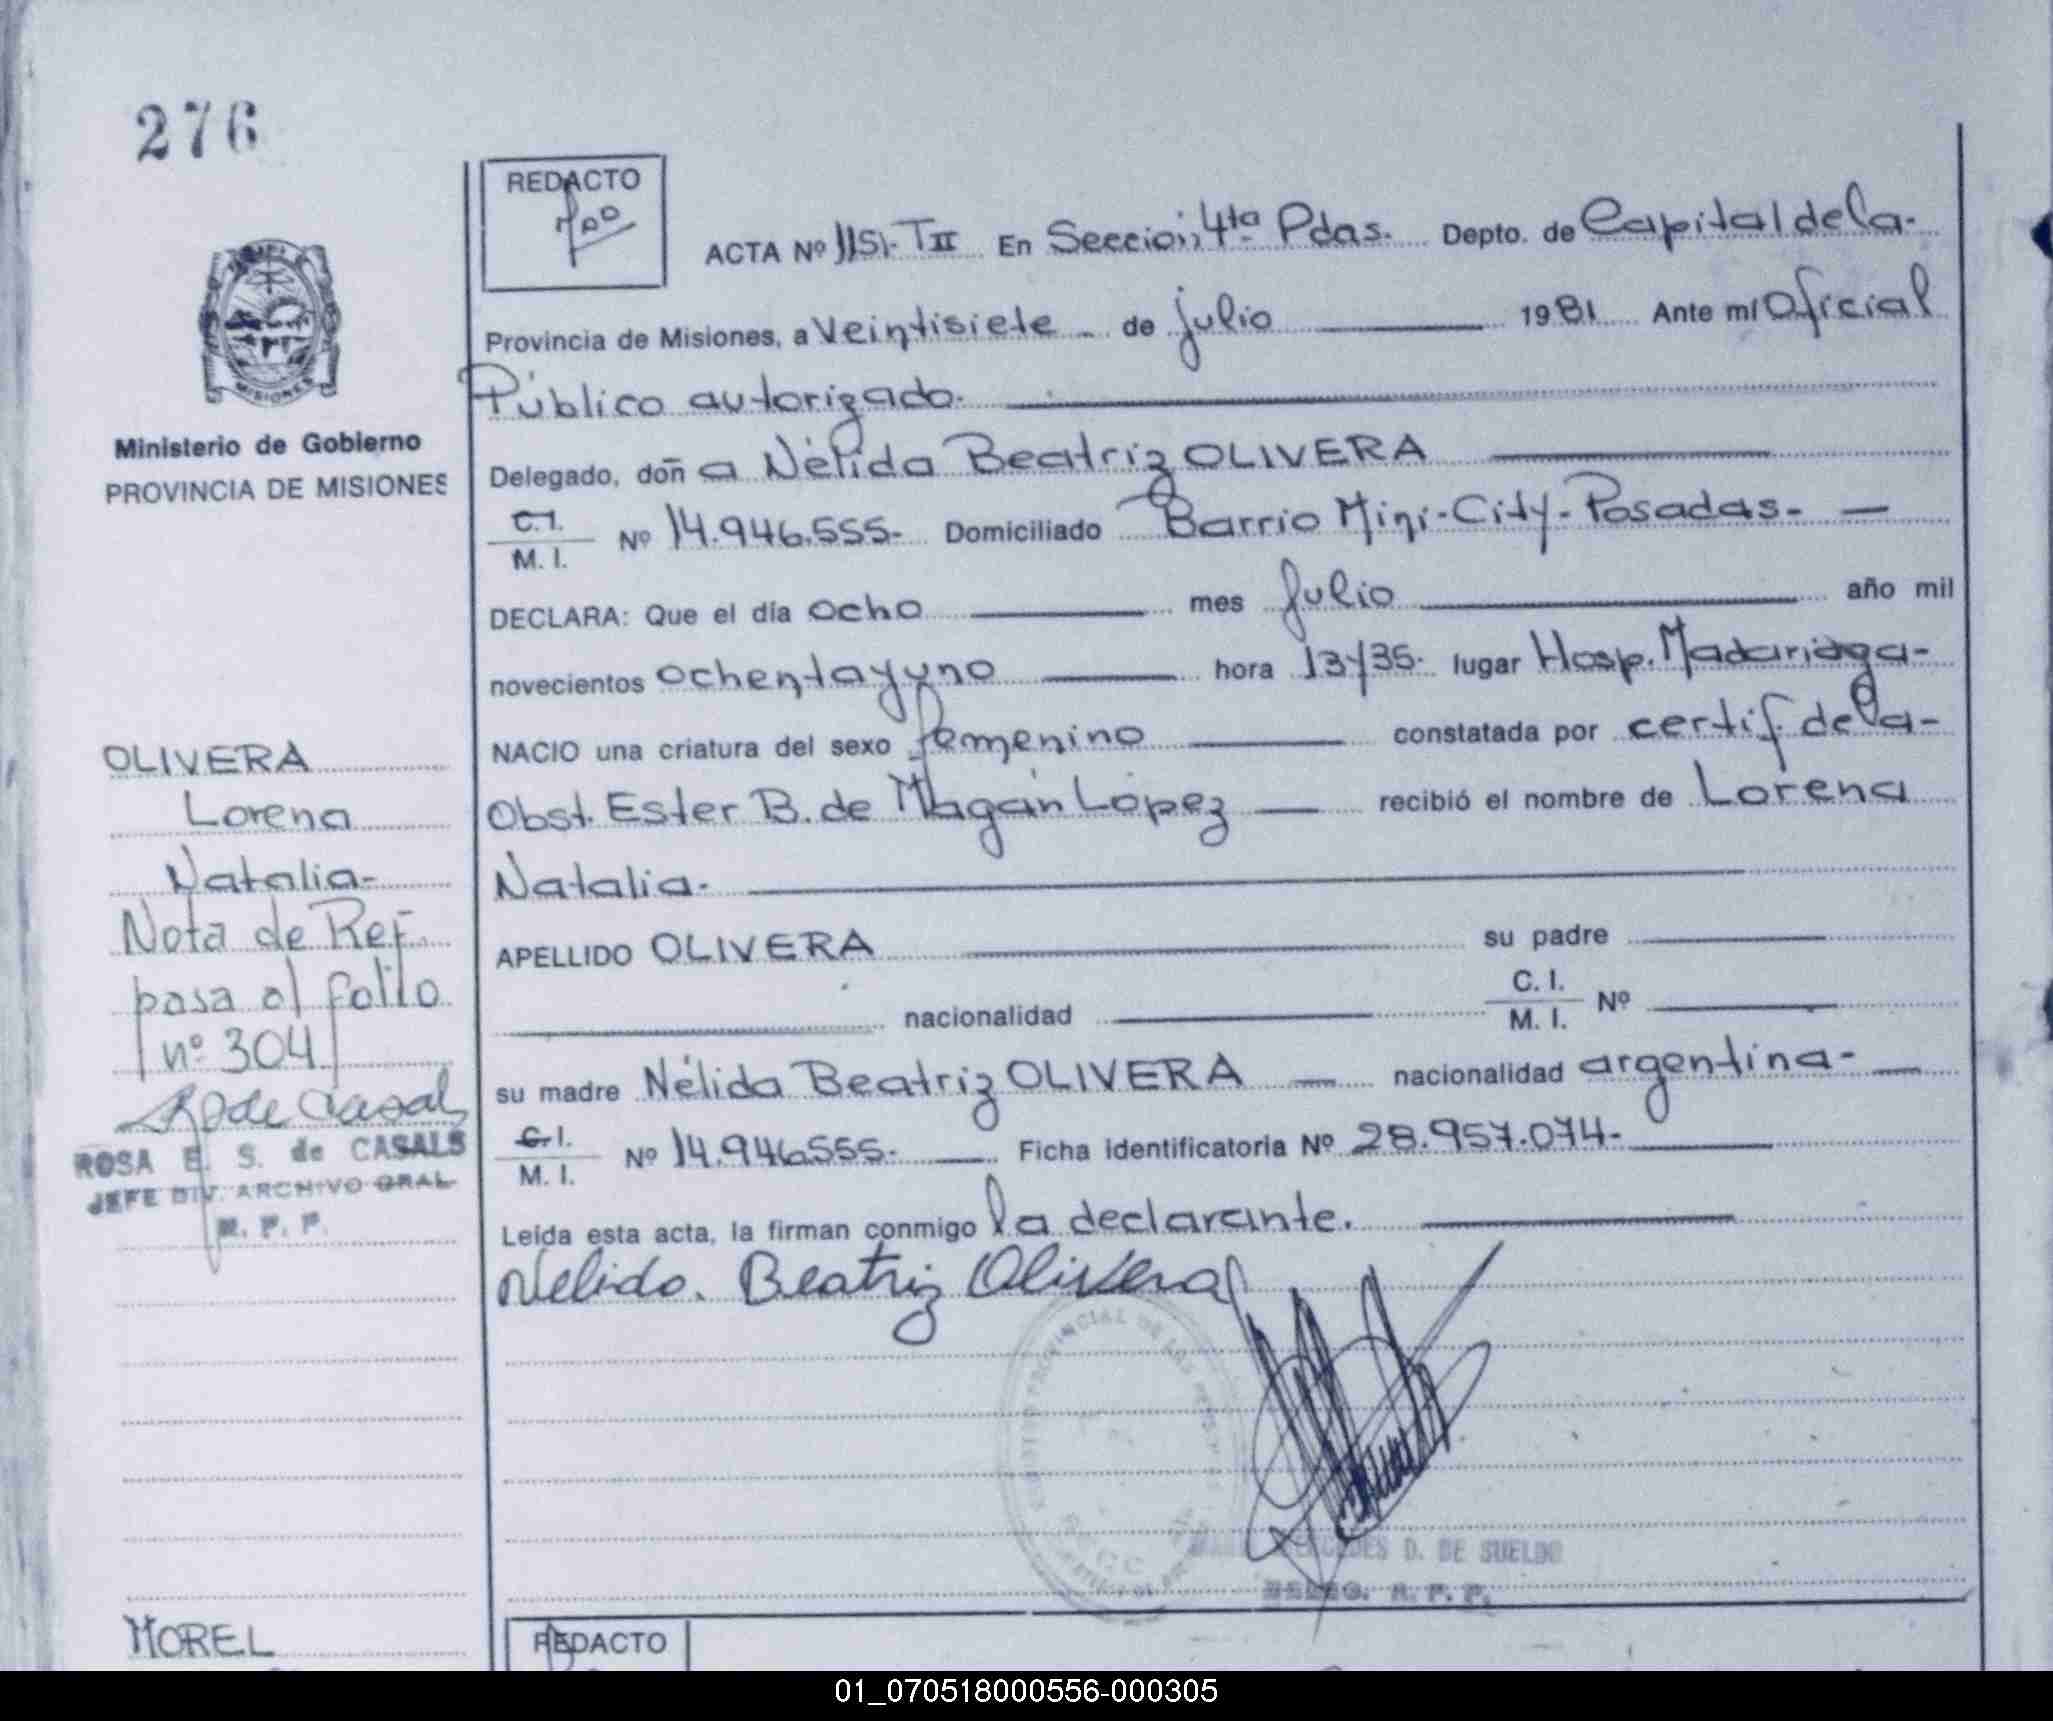 276
MISIONES
Ministerio de Gobierno
PROVINCIA DE MISIONES
OLIVERA
Lorena
Natalia-
Nota de Ref.
pasa al folio
nº 304
ROSA E. S. de CASALS
JEFE DIV. ARCHIVO GRAL
R. P. P.
MOREL
REDACTO
ACTA Nº 1151-TII En Sección 4ta Pdas. Depto. de Capital de la-
Provincia de Misiones, a Veintisiete - de julio 1981 Ante mí Oficial
Público autorizado.
Delegado, doñ a Nélida Beatriz OLIVERA
C.I.
M. I. Nº 14.946.555- Domiciliado Barrio Mini-City-Posadas-
DECLARA: Que el día ocho mes Julio año mil
novecientos ochentayuno hora 13y35- lugar Hosp. Madariaga-
NACIO una criatura del sexo femenino constatada por certif de la-
Obst. Ester B. de Magán López recibió el nombre de Lorena
Natalia-
APELLIDO OLIVERA su padre
nacionalidad C. I.
M. I. Nº
su madre Nélida Beatriz OLIVERA nacionalidad argentina-
C. I.
M. I. Nº 14.946.555- Ficha identificatoria Nº 28.957.074-
Leída esta acta, la firman conmigo la declarante.
Nelida. Beatriz Olivera
PROVINCIAL DE LAS
MERCEDES D. DE SUELDO
R. P. P.
REDACTO
01_070518000556-000305